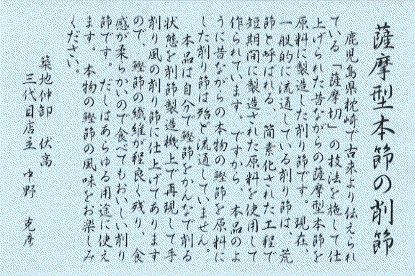 薩摩型本節の削節
鹿児島県枕崎で古来より伝えられ
ている「薩摩切」の技法を施して仕
上げられた昔ながらの薩摩型本節を
原料に製造した削り節です。現在、
一般的に流通している削り節は、荒
節と呼ばれる、簡素化された工程で
短期間に製造された原料を使用して
作られています。ですから、本品のよ
うに昔ながらの本物の鰹節を原料に
した削り節は殆ど流通していません。
本品は自分で鰹節をかんなで削る
状態を削節製造機上で再現して手
削り風の削り節に仕上げてあります
ので、鰹節の繊維が程良く残り、食
感が柔らかいので食べてもおいしい削り
節です。だしはあらゆる用途に使え
ます。本物の鰹節の風味をお楽しみ
ください。
築地仲卸 伏高
三代目店主 中野 克彦